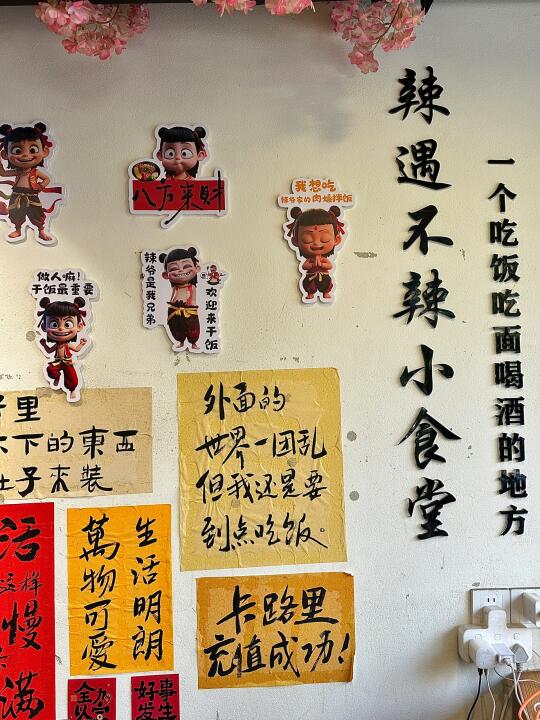 辣遇不辣小食堂
一个吃饭吃面喝酒的地方
八方来財
我想吃
辣爷家的肉燥拌饭
做人嘛!
干饭最重要
辣爷是我兄弟
欢迎来干饭
里
下的東西
肚子来裝
外面的
世界一团乱
但我还是要
到点吃饭。
活
这样
慢
满
生活明朗
萬物可愛
卡路里
充值成功!
好事
发生